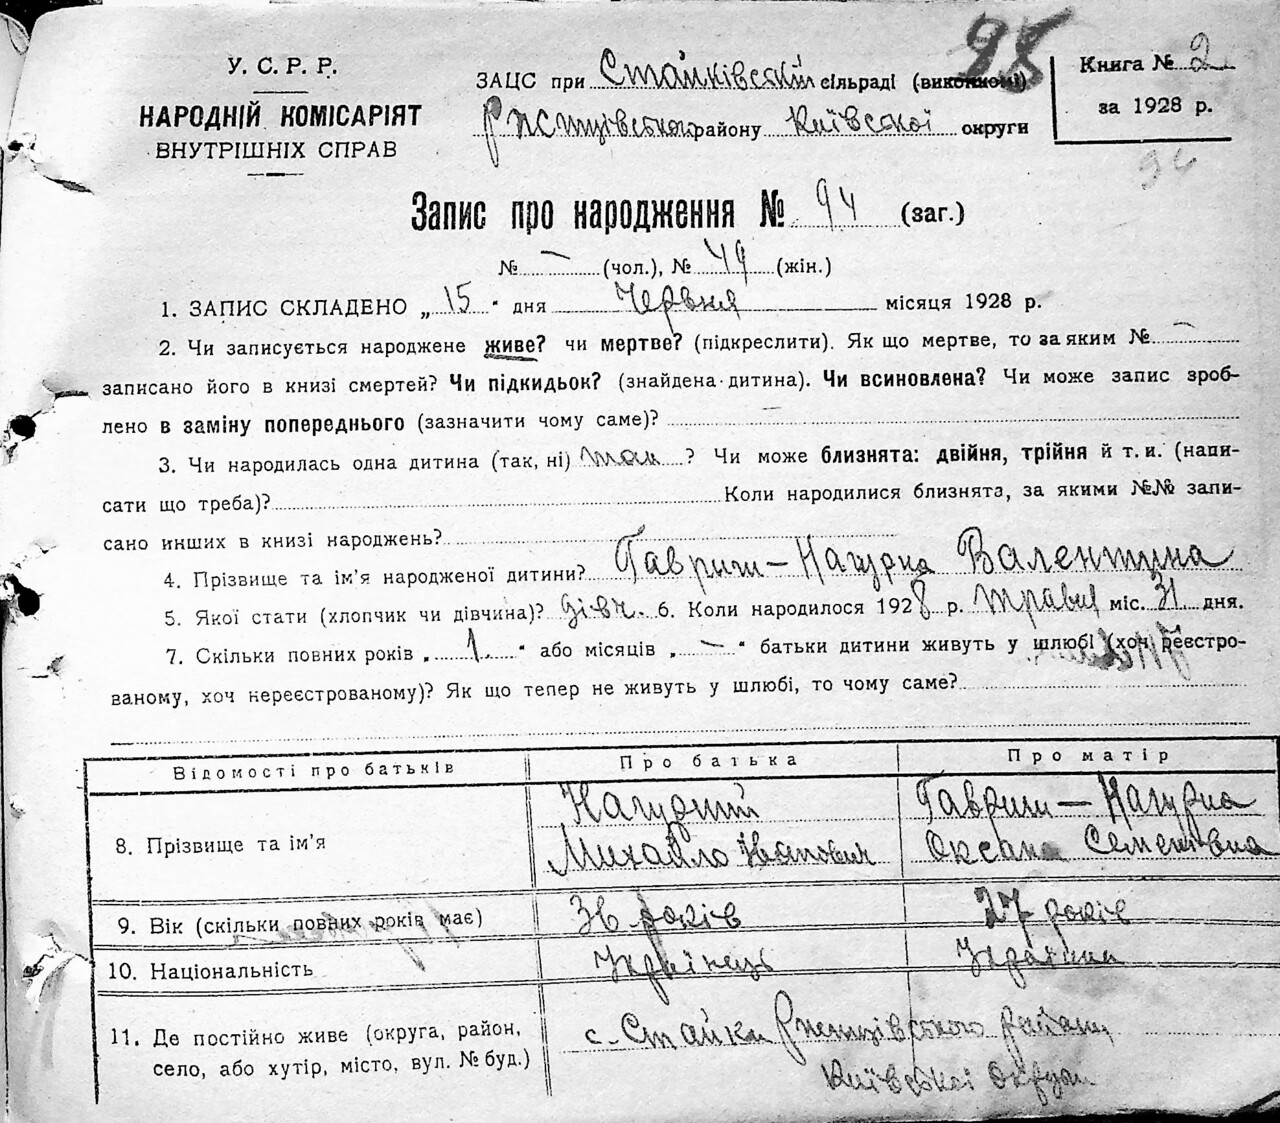 98
У. С. Р. Р.
НАРОДНІЙ КОМІСАРІЯТ
ВНУТРІШНІХ СПРАВ
ЗАЦС при Стайківській сільраді (виконкомі)
Ржищівського району Київської округи
Книга № 2
за 1928 р.
94
Запис про народження № 94 (заг.)
№ — (чол.), № 49 (жін.)
1. ЗАПИС СКЛАДЕНО „ 15 " дня Червня місяця 1928 р.
2. Чи записується народжене живе? чи мертве? (підкреслити). Як що мертве, то за яким № —
записано його в книзі смертей? Чи підкидьок? (знайдена дитина). Чи всиновлена? Чи може запис зроб-
лено в заміну попереднього (зазначити чому саме)? —
3. Чи народилась одна дитина (так, ні) так ? Чи може близнята: двійня, трійня й т. и. (напи-
сати що треба)? Коли народилися близнята, за якими №№ запи-
сано инших в книзі народжень?
4. Прізвище та ім'я народженої дитини? Гавриш — Нагурна Валентина
5. Якої стати (хлопчик чи дівчина)? дівч. 6. Коли народилося 1928 р. травня міс. 31 дня.
7. Скільки повних років „ 1 " або місяців „ — " батьки дитини живуть у шлюбі (хоч реєстро-
ваному, хоч нереєстрованому)? Як що тепер не живуть у шлюбі, то чому саме?
Відомості про батьків Про батька Про матір
8. Прізвище та ім'я Нагурний Михайло Іванович Гавриш — Нагурна Оксана Семенівна
9. Вік (скільки повних років має) 36 років 27 років
10. Національність Українець Українка
11. Де постійно живе (округа, район, с. Стайки Ржищівського району
село, або хутір, місто, вул. № буд.) Київської округи